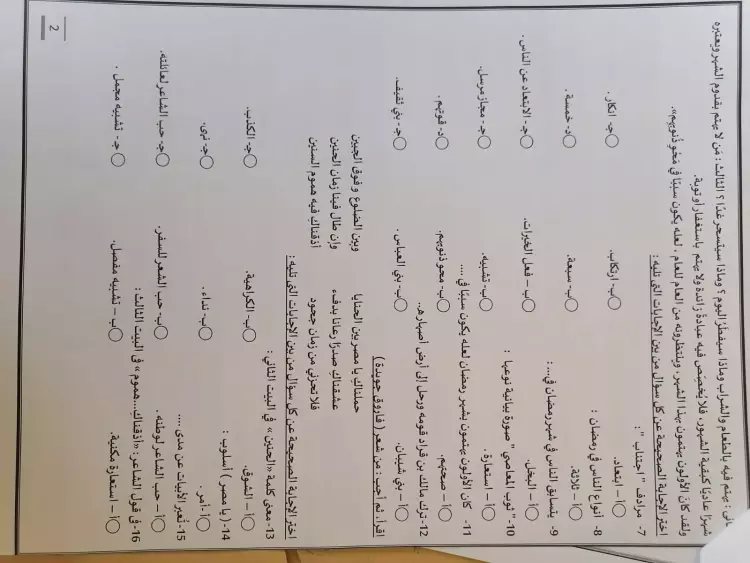 يهتم فيه بالطعام والشراب وماذا سيفطرُ اليوم ؟ وماذا سيتسحر غدًا ؟ الثالث : مَن لا يهتم بقدوم الشهر ويعتبره
شهرًا عاديًا كبقية الشهور، فلا يُخصِص فيه عبادةً زائدة ولا يهتم باستغفار أو توبة.
ولقد كانَ الأولون يهتمون بهذا الشهر، وينتظرونه من العام للعام ، لعله يكون سببًا في مَحْوِ ذُنُوبهم».
اختر الإجابة الصحيحة عن كل سؤال من بين الإجابات التى تليه :
7- مرادف " اجتناب " :
أ – ابتعاد. ب- ارتكاب. ج- انكار .
8- أنواع الناس في رمضان :
أ – ثلاثة. ب- سبعة. د- خمسة .
9- يتسابق الناس في شهر رمضان في...:
أ – البخل. ب – فعل الخيرات. ج- الابتعاد عن الناس .
10- " ثوب المعاصي " صورة بيانية نوعها :
أ – استعارة . ب- تشبيه. ج – مجاز مرسل.
11- كان الأولون يهتمون بشهر رمضان لعله يكون سببًا في ....
أ – صحتهم. ب- محو ذنوبهم. د- قوتهم .
12- ترك مالك بن قراد قومه ورحل إلى أرض أصهاره...
أ – بني شيبان. ب- بني العباس . ج- بني ثقيف.
اقرأ، ثم أجب : من شعر ( فاروق جويدة )
حملناكِ يا مصر بين الحنايا وبين الضلوع وفوق الجبين
عشقناكِ صدرًا رعانا بدفء وإن طال فينا زمان الحنين
فلا تحزني من زمان جحود أذقناكِ فيه هموم السنين
اختر الإجابة الصحيحة عن كل سؤال من بين الإجابات التى تليه :
13- معنى كلمة «الحنين » في البيت الثاني :
أ – الشوق. ب- الكراهية. ج- الكذب.
14- ( يا مصر ) أسلوب :
أ- أمر. ب- نداء. ج- نهي.
15- تُعبر الأبيات عن مدى ....
أ – حب الشاعر لوطنه. ب- حب الشعر للسفر. ج- حب الشاعر لعائلته.
16- في قول الشاعر : «أذقناكِ...هموم » في البيت الثالث :
أ – استعارة مكنية. ب – تشبيه مفصل. ج – تشبيه مجمل .
2